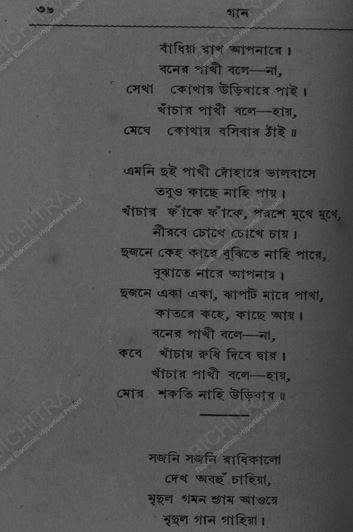 ৩৬ গান
বাঁধিয়া রাখ আপনারে।
বনের পাখী বলে—না,
সেথা কোথায় উড়িবারে পাই।
খাঁচার পাখী বলে—হায়,
মেঘে কোথায় বসিবার ঠাঁই॥
এমনি দুই পাখী দোঁহারে ভালবাসে
তবুও কাছে নাহি পায়।
খাঁচার ফাঁকে ফাঁকে, পরশে মুখে মুখে,
নীরবে চোখে চোখে চায়।
দুজনে কেহ কারে বুঝিতে নাহি পারে,
বুঝাতে নারে আপনায়।
দুজনে একা একা, ঝাপটি মারে পাখা,
কাতরে কহে, কাছে আয়।
বনের পাখী বলে—না,
কবে খাঁচায় রুধি দিবে দ্বার।
খাঁচার পাখী বলে—হায়,
মোর শকতি নাহি উড়িবার॥
সজনি সজনি রাধিকালো
দেখ অবহুঁ চাহিয়া,
মৃদুল গমন শ্যাম আওয়ে
মৃদুল গান গাহিয়া।
BICHITRA